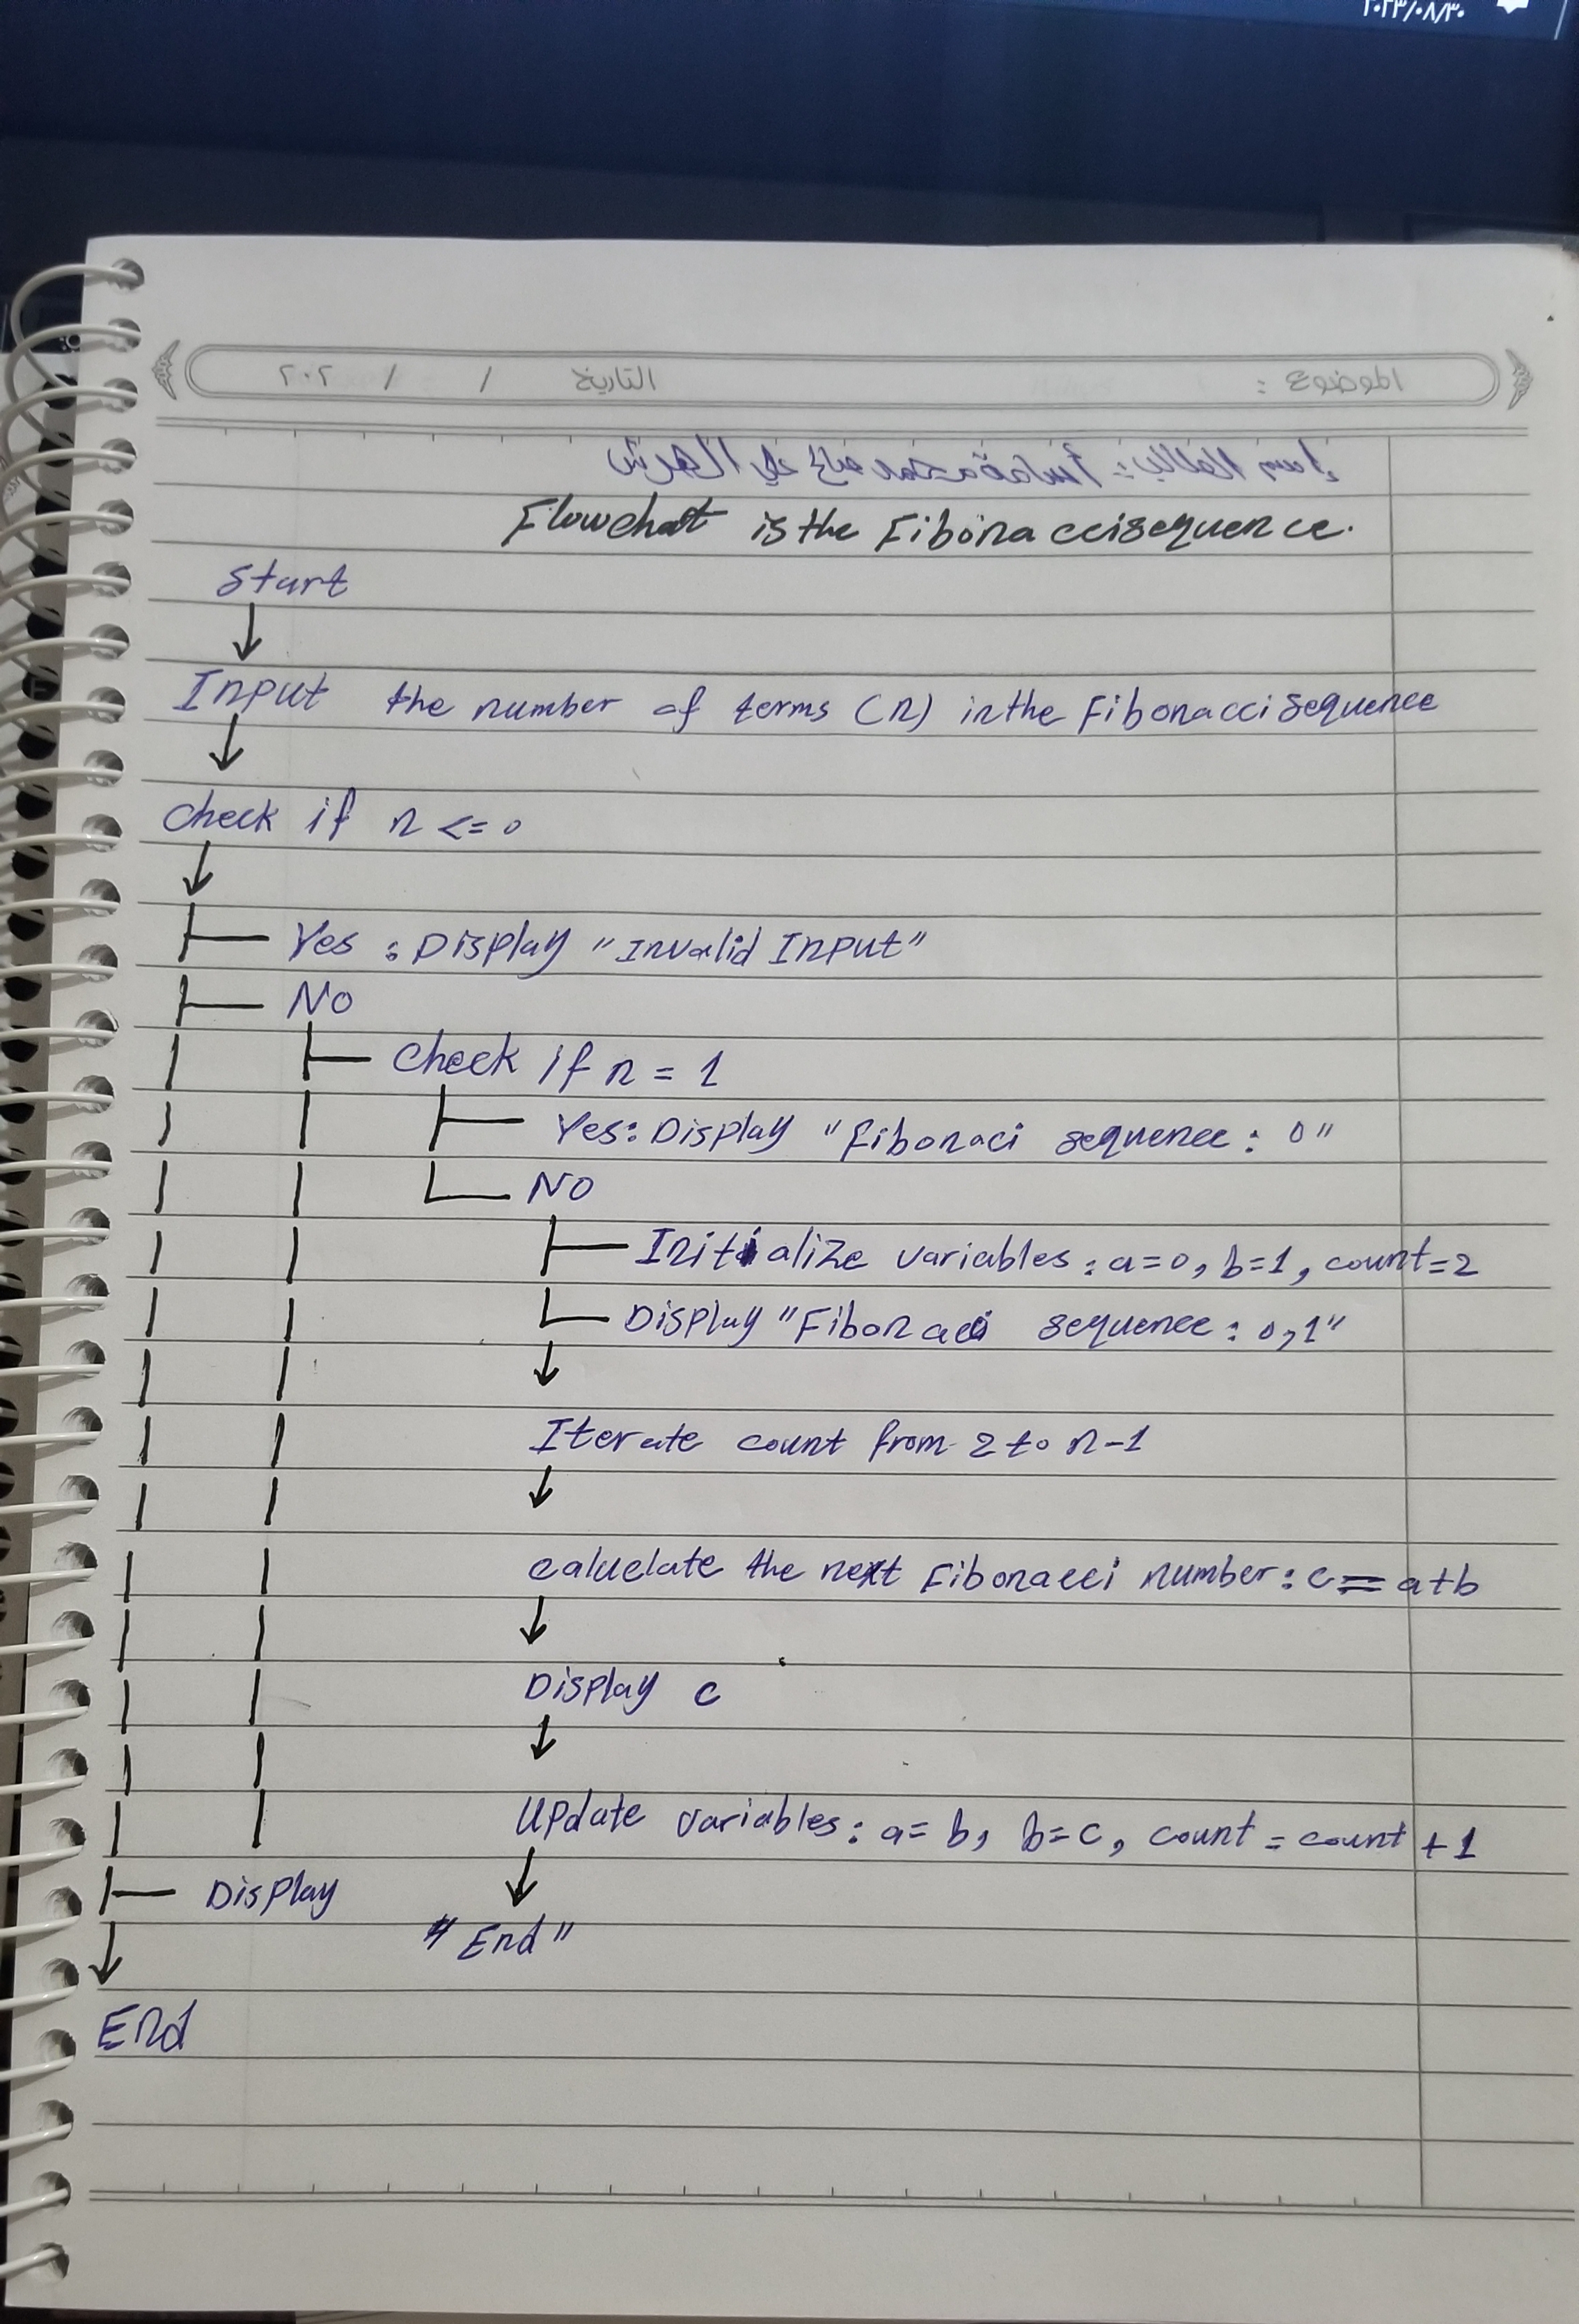 ٢٠٢٣/٠٨/٣٠
الموضوع :
التاريخ / / ٢٠٢
إسم الطالب :
Flowchat is the Fibonaccisequence.
Start
Input the number of terms (n) in the Fibonacci sequence
check if n <= 0
Yes : Display "Invalid Input"
No
check if n = 1
Yes: Display "Fibonaci sequence: 0"
No
Initialize variables : a=0, b=1, count=2
Display "Fibonaci sequence : 0,1"
Iterate count from 2 to n-1
caluclate the next Fibonacci number : c = a+b
Display c
Update variables : a= b, b=c, count = count + 1
Display
"End"
End